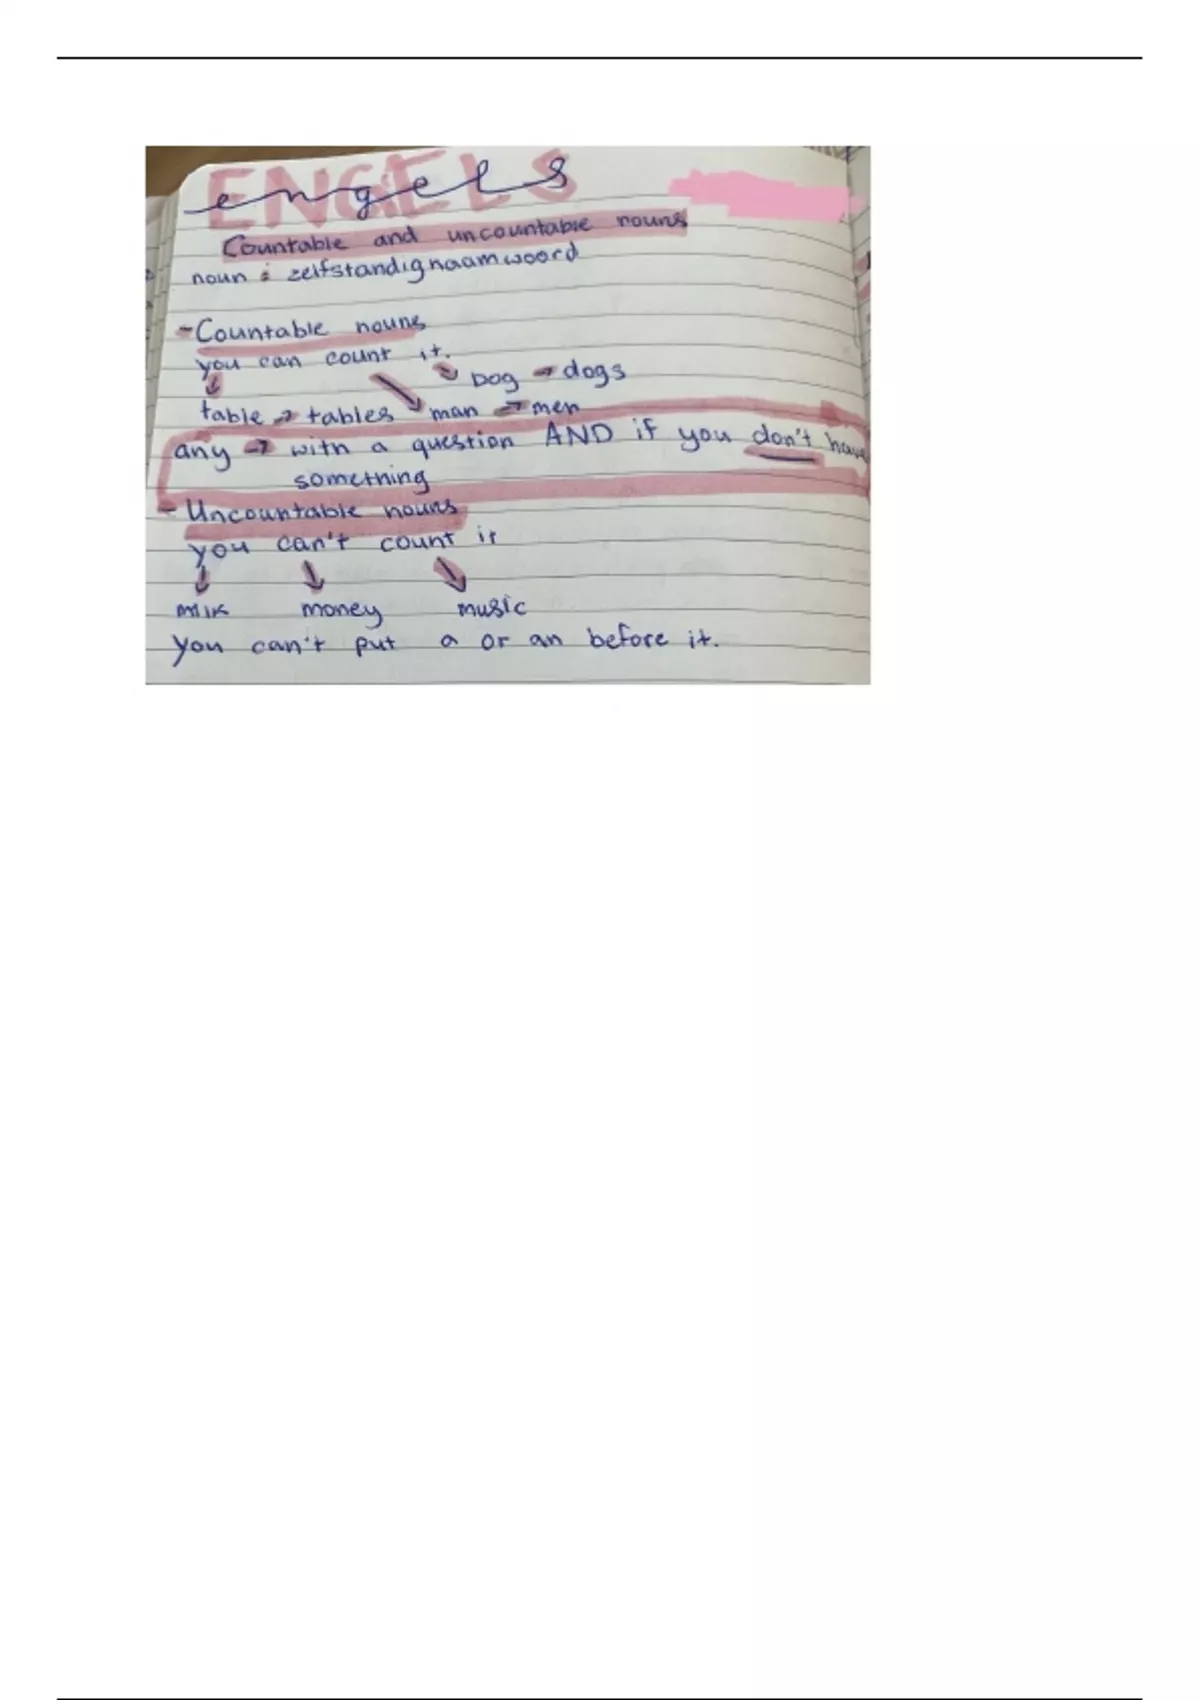 ENGELS
engels
Countable and uncountable nouns
noun : zelfstandignaamwoord
- Countable nouns
you can count it.
Dog → dogs
table → tables man → men
any → with a question AND if you don't have
something
- Uncountable nouns
you can't count it
milk money music
You can't put a or an before it.